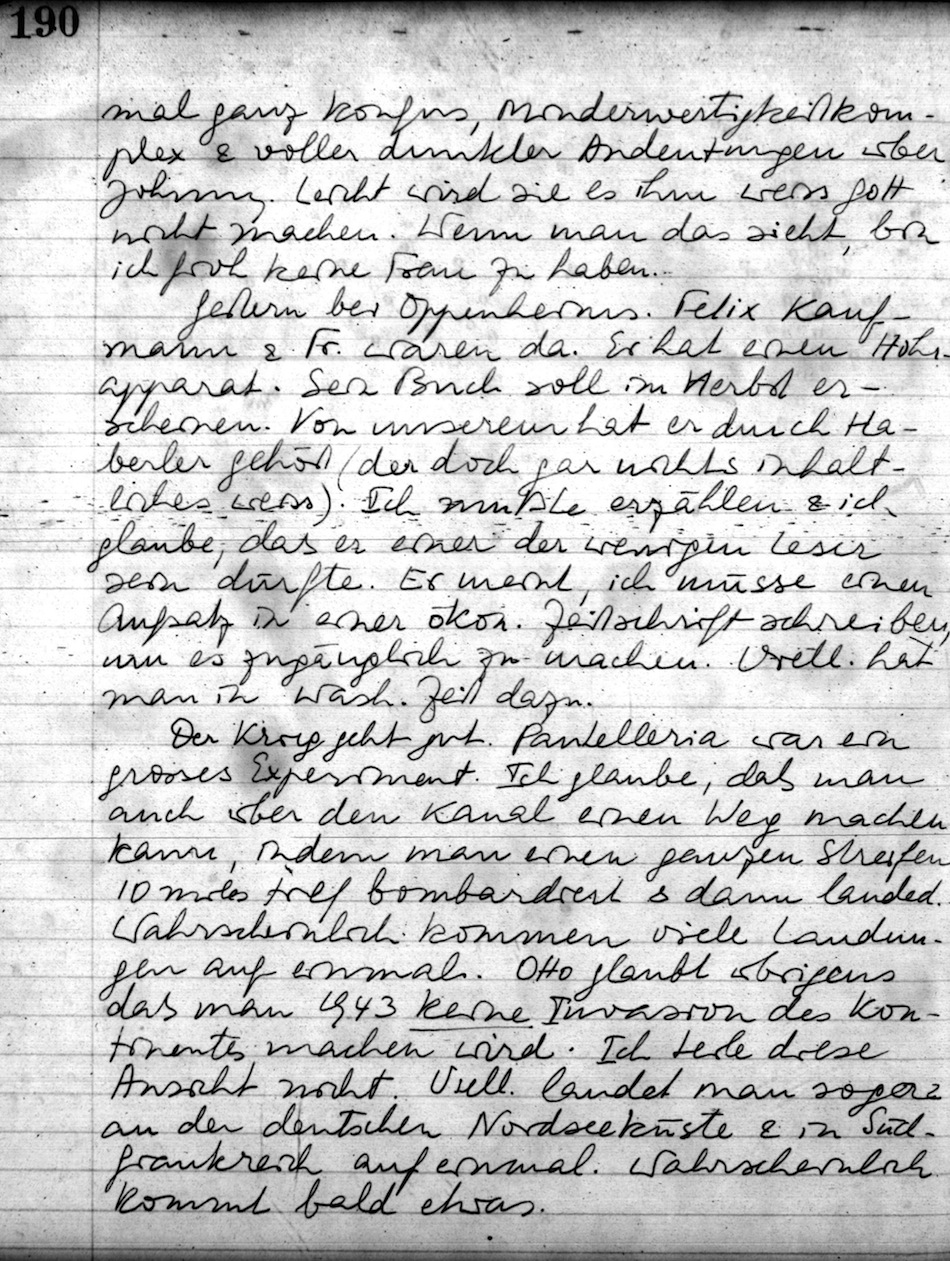 190
mal ganz konfus, Minderwertigkeitkom-
plex & voller dunkler Andeutungen über
Johnny. Leicht wird sie es ihm weiss Gott
nicht machen. Wenn man das sieht, bin
ich froh keine Frau zu haben.
Gestern bei Oppenheims. Felix Kauf-
mann & Fr. waren da. Er hat einen Hohr-
apparat. Sein Buch soll im Herbst er-
scheinen. Von unserem hat er durch Ha-
berler gehört (der doch gar nichts inhalt-
liches weiss). Ich musste erzählen & ich
glaube, das er einer der wenigen Leser
sein dürfte. Er meint, ich müsse einen
Aufsatz in einer ökon. Zeitschrift schreiben,
um es zugänglich zu machen. Viell. hat
man in Wash. Zeit dazu.
Der Krieg geht gut. Pantelleria war ein
grosses Experiment. Ich glaube, das man
auch über den Kanal einen Weg machen
kann, indem man einen ganzen Streifen
10 miles tief bombardiert & dann landed.
Wahrscheinlich kommen viele Landun-
gen auf einmal. Otto glaubt übrigens
das man 1943 keine Invasion des Kon-
tinentes machen wird. Ich teile diese
Ansicht nicht. Viell. landet man sogar
an der deutschen Nordseeküste & in Süd-
frankreich auf einmal. Wahrscheinlich
kommt bald etwas.